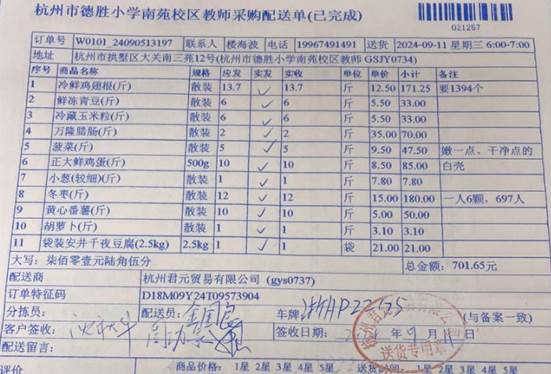 杭州市德胜小学南苑校区教师采购配送单(已完成)
021257
订单号 W0101_24090513197 联系人 楼海波 电话 19967491491 送货 2024-09-11 星期三 6:00-7:00
地址 杭州市拱墅区大关南三苑12号(杭州市德胜小学南苑校区教师 GSJY0734)
序号 商品名称 规格 应发 实发 实收 单位 单价 小计 备注
1 冷鲜鸡翅根(斤) 散装 13.7 13.7 斤 12.50 171.25 要1394个
2 鲜冻青豆(斤) 散装 6 6 斤 5.50 33.00
3 冷藏玉米粒(斤) 散装 6 6 斤 5.50 33.00
4 万隆腊肠(斤) 散装 2 2 斤 35.00 70.00
5 菠菜(斤) 散装 5 5 斤 9.50 47.50 嫩一点、干净点的
6 正大鲜鸡蛋(斤) 500g 10 10 斤 8.50 85.00 白壳
7 小葱(较细)(斤) 散装 1 1 斤 7.80 7.80
8 冬枣(斤) 散装 12 12 斤 15.00 180.00 一人6颗，697人
9 黄心番薯(斤) 散装 10 10 斤 5.00 50.00
10 胡萝卜(斤) 散装 1 1 斤 3.10 3.10
11 袋装安井千夜豆腐(2.5kg) 2.5kg 1 1 袋 21.00 21.00
大写：柒佰零壹元陆角伍分 总金额：701.65元
配送商 杭州君元贸易有限公司 (gys0737)
订单特征码 D18M09Y24T09573904
分拣员： 配送员： 车牌 (与备案一致)
客户签收： 签收日期： 年 9月11日
送货专用章
配送留言：
商品价格： 1星 2星 3星 4星 5星